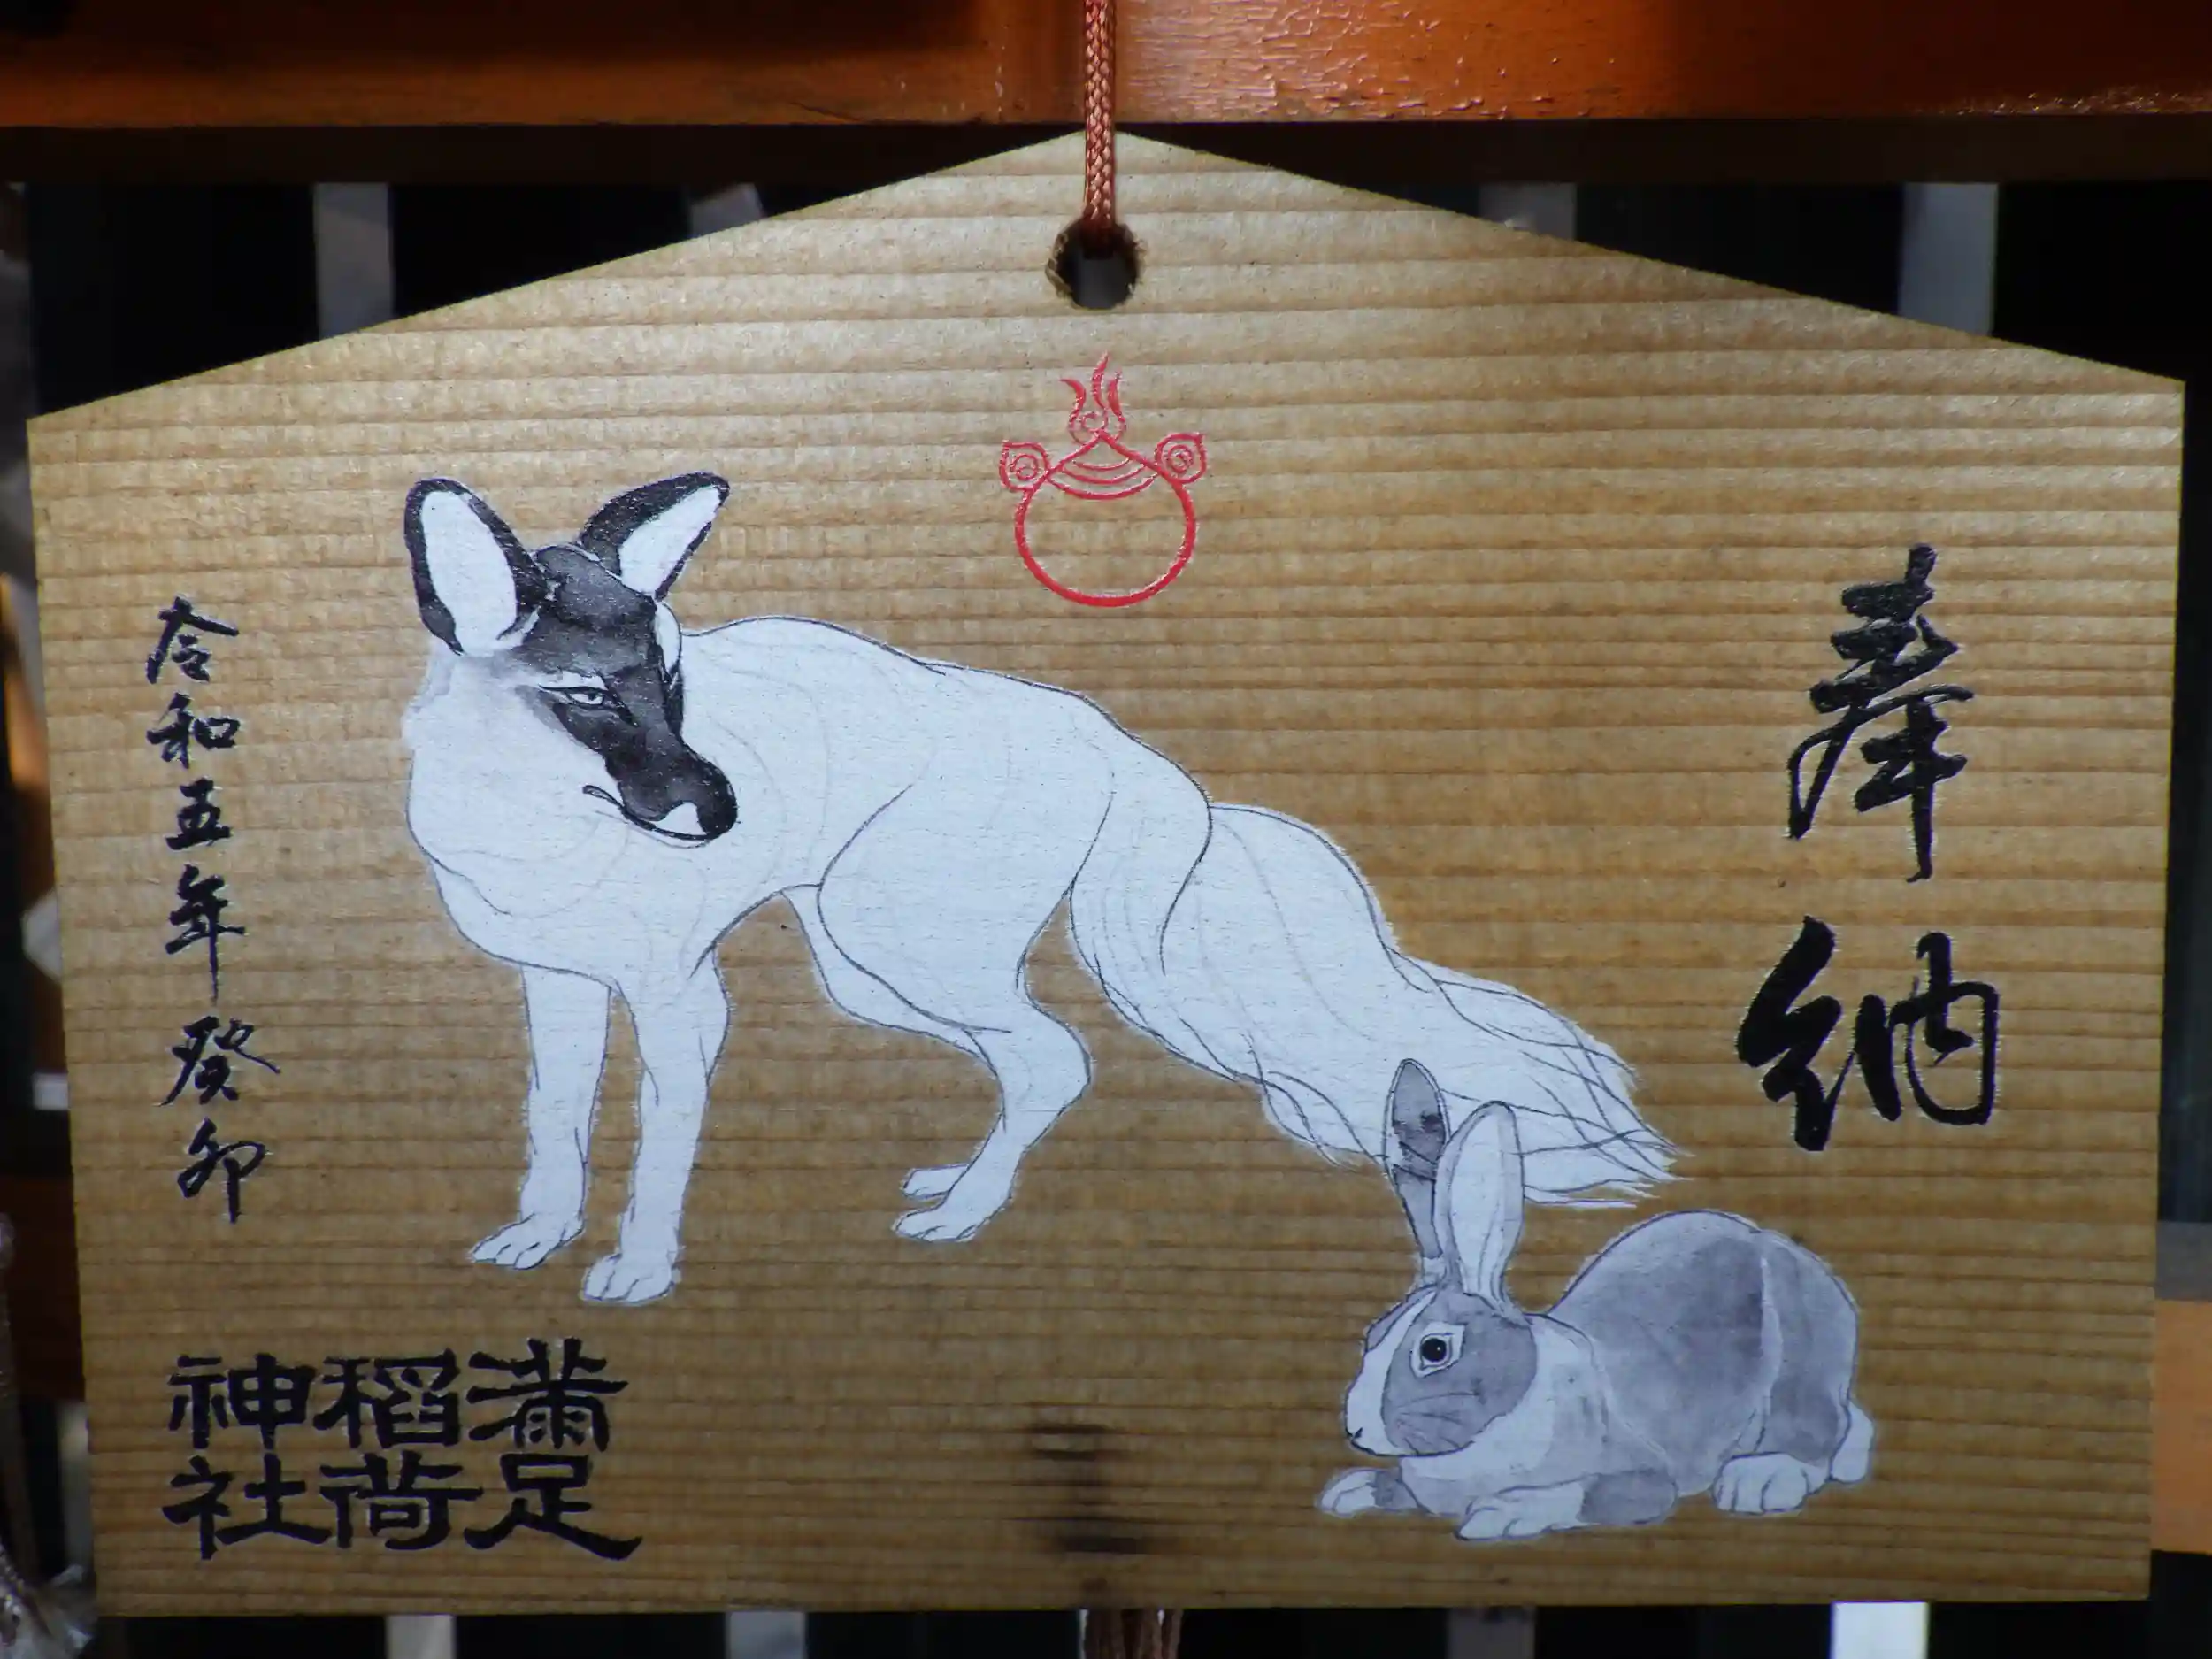 奉納
令和五年 癸卯
満足
稲荷
神社